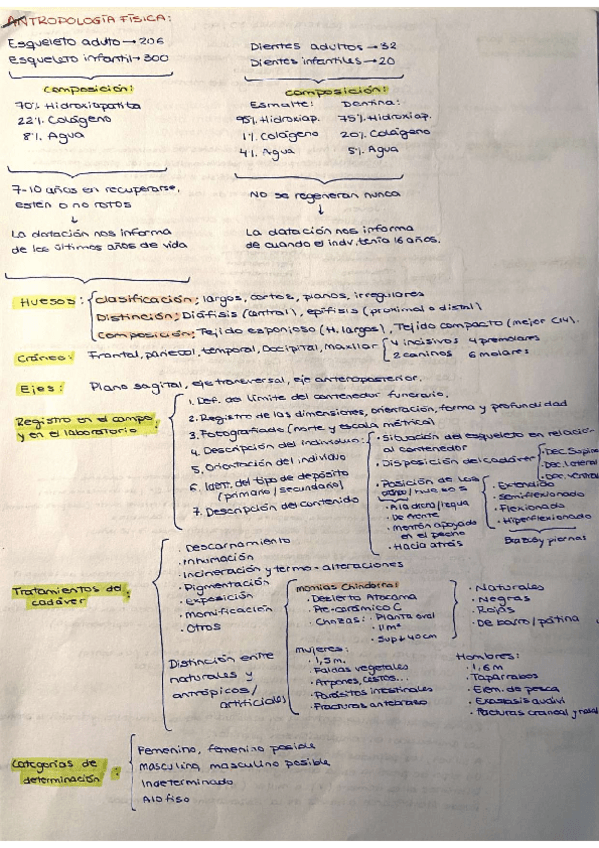 ANTROPOLOGÍA FÍSICA:
Esqueleto aduto → 206
Esqueleto infantil → 300
Dientes adultos → 32
Dientes infantiles → 20
composición:
70% Hidroxiapatita
22% Colágeno
8% Agua
composición:
Esmalte: Dentina:
95% Hidroxiap. 75% Hidroxiap.
1% Colágeno 20% Colágeno
4% Agua 5% Agua
7-10 años en recuperarse,
estén o no rotos
↓
La datación nos informa
de los últimos años de vida
NO se regeneran nunca
↓
La datación nos informa
de cuando el indv. tenía 16 años.
Huesos: clasificación; largos, cortos, planos, irregulares
Distinción; Diáfisis (central), epífisis (proximal o distal)
Composición; Tejido esponjoso (H. largos), Tejido compacto (mejor C14).
Cráneo: Frontal, parietal, temporal, Occipital, Maxilar
4 incisivos 4 premolares
2 caninos 6 molares
Ejes: Plano sagital, eje transversal, eje anteroposterior.
Registro en el campo
y en el laboratorio:
1. Def. de límite del contenedor funerario.
2. Registro de las dimensiones, orientación, forma y profundidad
3. Fotografiado (norte y escala métrica)
4. Descripción del individuo:
5. Orientación del individuo
6. Ident. del tipo de depósito
(primario/secundario)
7. Descripción del contenido
· Situación del esqueleto en relación
al contenedor
· Disposición del cadáver
· Dec. Supino
· Dec. lateral
· Dec. ventral
· Posición de los
huesos
· A la drcha/izqua
· De frente
· Mentón apoyado
en el pecho
· Hacia atrás
· Extendido
· Semiflexionado
· Flexionado
· Hiperflexionado
Brazos y piernas
Tratamientos del
cadáver:
· Descarnamiento
· Inhumación
· Incineración y termo-alteraciones
· Pigmentación
· Exposición
· Momificación
· Otros
Distinción entre
naturales y
antrópicos/
artificiales
momias Chinchorro:
· Desierto Atacama
· Pre-cerámico C
· Chozas: · Planta oval
· 11m²
· Sup ↓ 40cm
· Naturales
· Negras
· Rojas
· De barro/pátina
Mujeres:
· 1,5m.
· Faldas vegetales
· Arpones, cestos...
· Parásitos intestinales
· Fracturas antebrazo
Hombres:
· 1,6m
· Taparrabos
· Elem. de pesca
· Exostosis audivi
· Facturas craneal y nasal
Categorías de
determinación:
Femenino, femenino posible
masculino, masculino posible
Indeterminado
Alofiso